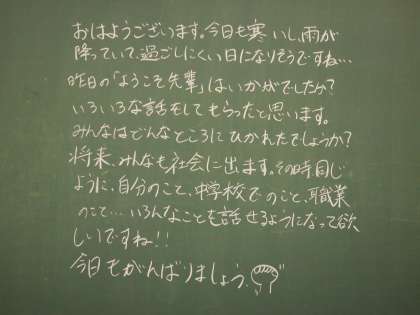 おはようございます。今日も寒いし、雨が
降っていて、過ごしにくい日になりそうですね…
昨日の「ようこそ先輩」はいかがでしたか？
いろいろな話をしてもらったと思います。
みんなはどんなところにひかれたでしょうか？
将来、みんなも社会に出ます。その時同じ
ように、自分のこと、中学校でのこと、職業
のこと…いろんなことも話せるようになって欲
しいですね！！
今日もがんばりましょう。